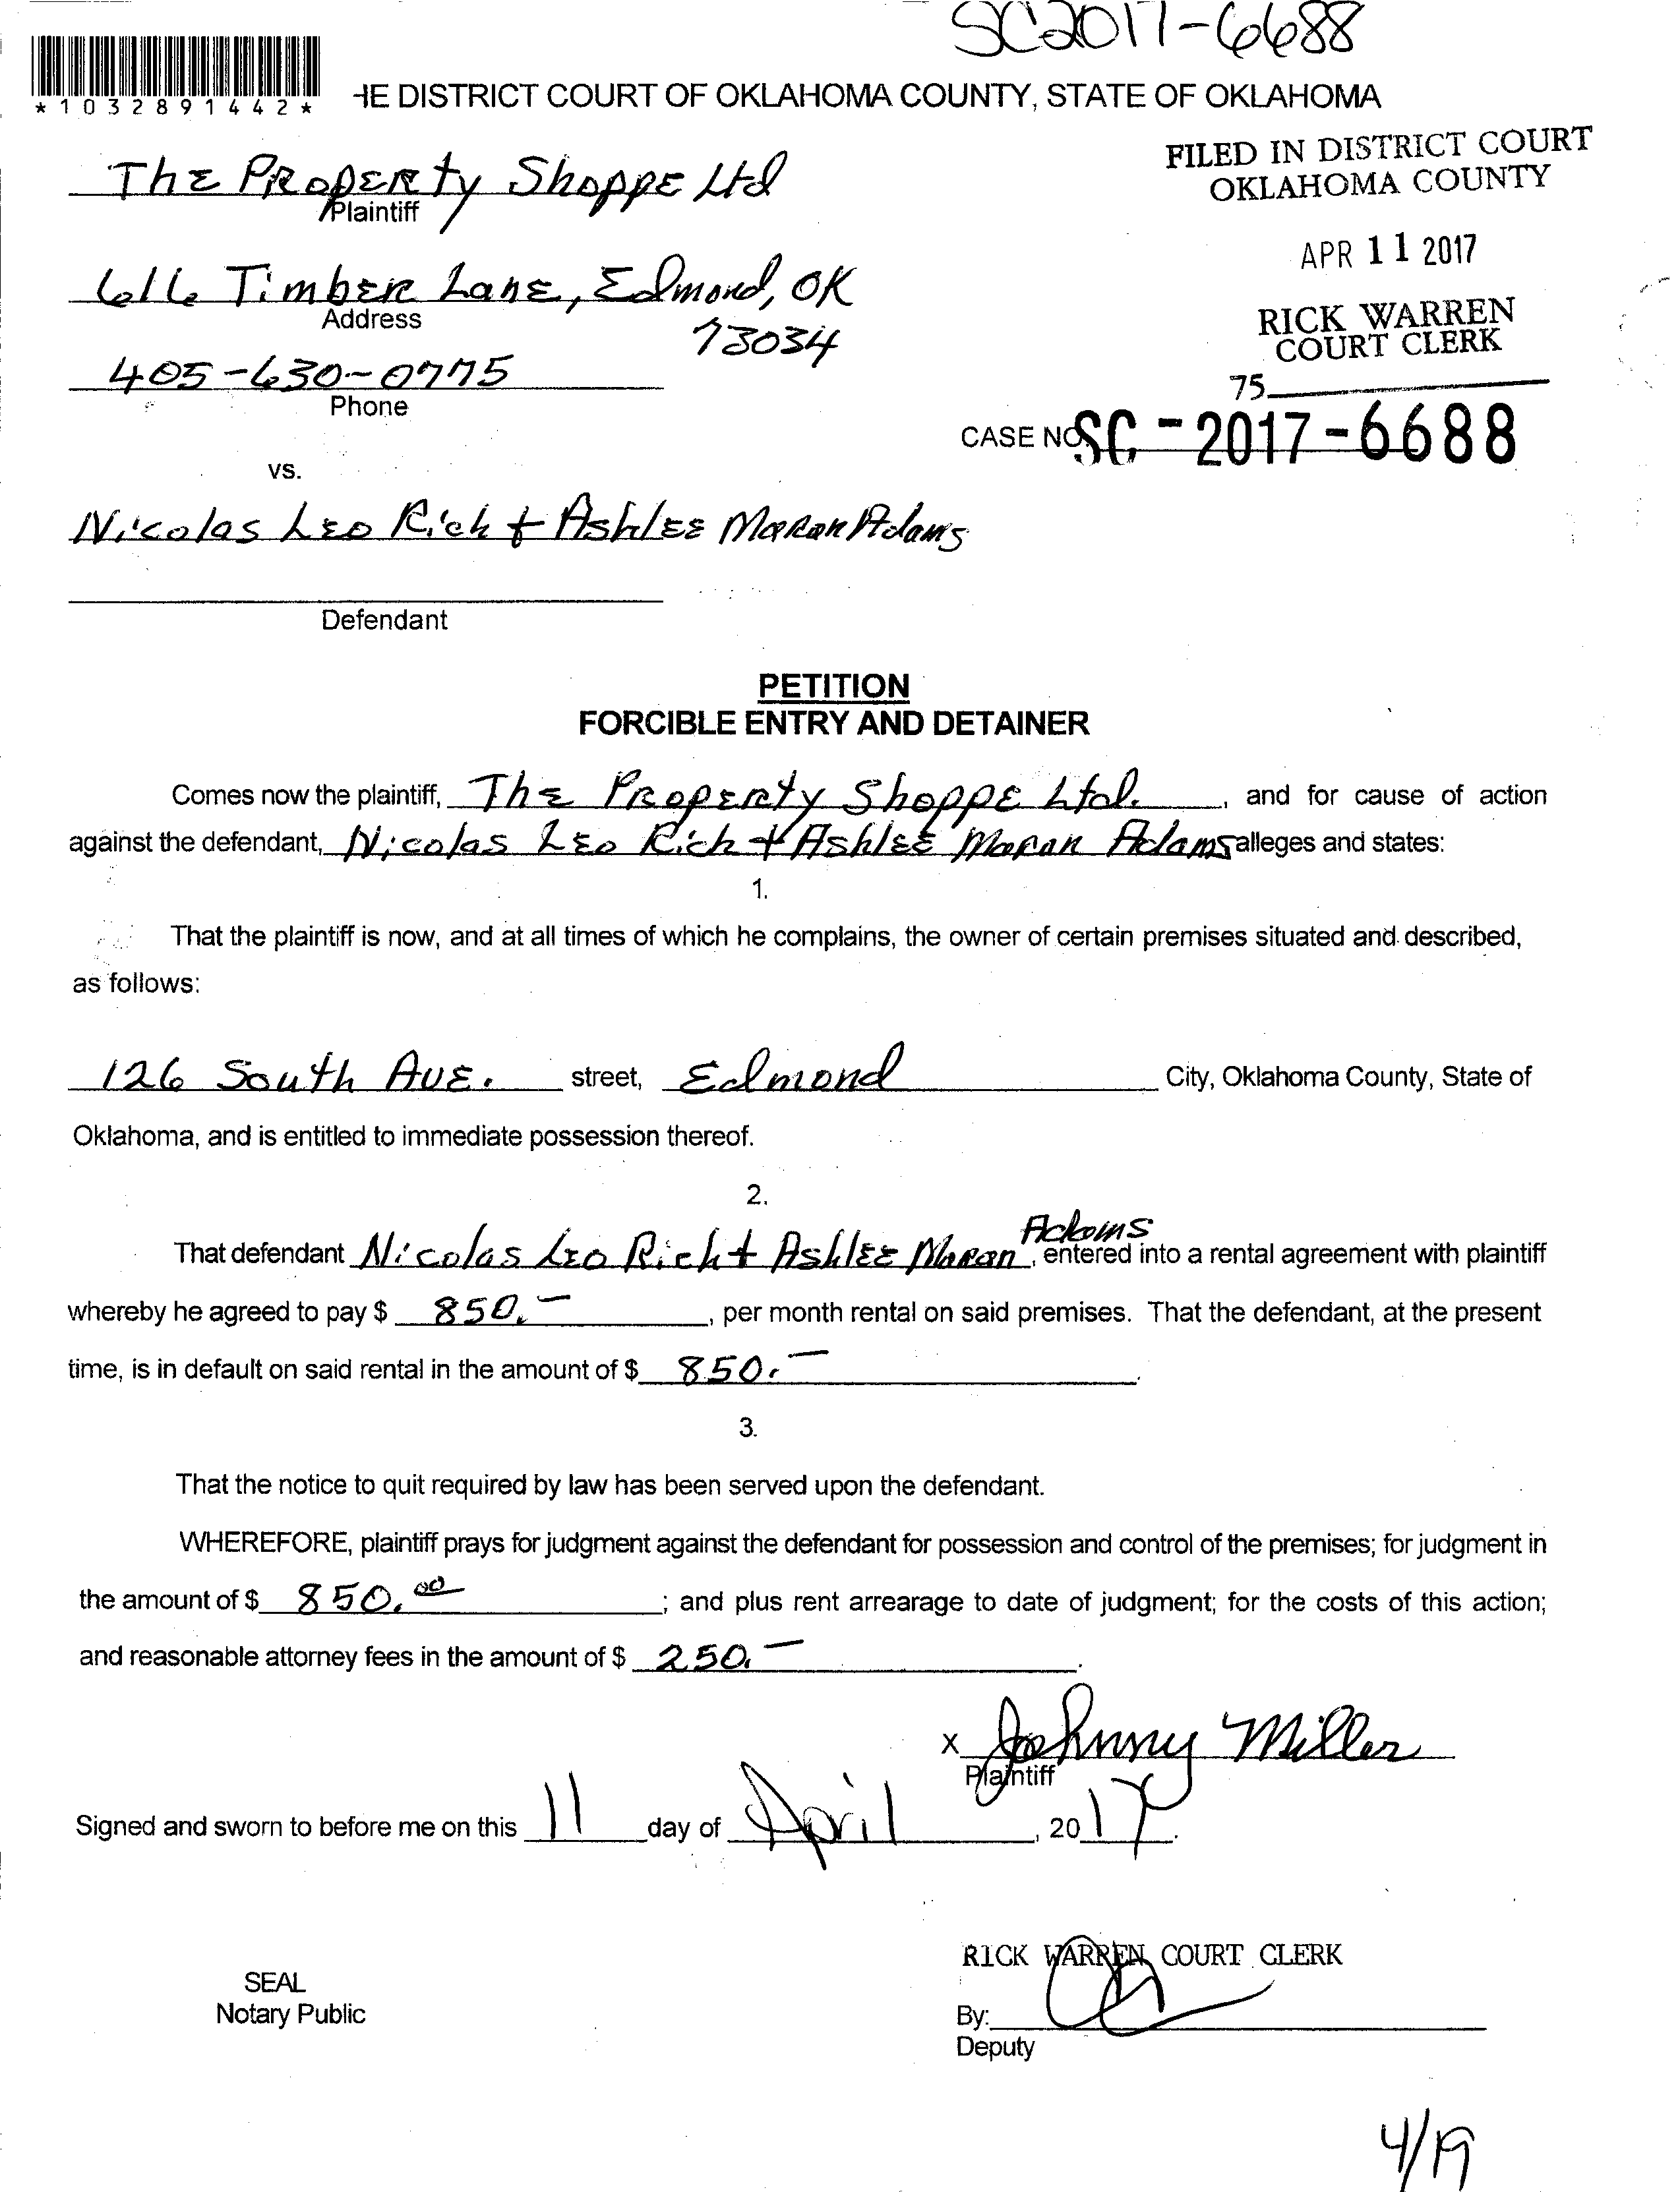 SC2017-6688
*1032891442*
HE DISTRICT COURT OF OKLAHOMA COUNTY, STATE OF OKLAHOMA
FILED IN DISTRICT COURT
OKLAHOMA COUNTY
The Property Shoppe Ltd
Plaintiff
APR 11 2017
616 Timber Lane, Edmond, OK
Address
73034
RICK WARREN
COURT CLERK
405-630-0775
Phone
75
CASE NO. SC-2017-6688
vs.
Nicolas Leo Rich + Ashlee Maran Adams
Defendant
PETITION
FORCIBLE ENTRY AND DETAINER
Comes now the plaintiff, The Property Shoppe Ltd. , and for cause of action
against the defendant, Nicolas Leo Rich + Ashlee Maran Adams alleges and states:
1.
That the plaintiff is now, and at all times of which he complains, the owner of certain premises situated and described,
as follows:
126 South Ave. street, Edmond City, Oklahoma County, State of
Oklahoma, and is entitled to immediate possession thereof.
2.
That defendant Nicolas Leo Rich + Ashlee Maran Adams, entered into a rental agreement with plaintiff
whereby he agreed to pay $ 850.- , per month rental on said premises. That the defendant, at the present
time, is in default on said rental in the amount of $ 850.- .
3.
That the notice to quit required by law has been served upon the defendant.
WHEREFORE, plaintiff prays for judgment against the defendant for possession and control of the premises; for judgment in
the amount of $ 850.00 ; and plus rent arrearage to date of judgment; for the costs of this action;
and reasonable attorney fees in the amount of $ 250.- .
X Johnny Miller
Plaintiff
Signed and sworn to before me on this 11 day of April , 2017.
RICK WARREN COURT CLERK
SEAL
Notary Public
By:
Deputy
4/19